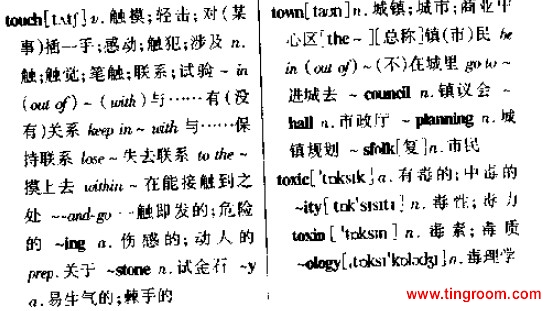 touch[tʌtʃ] v. 触摸;轻击;对(某
事)插一手;感动;触犯;涉及 n.
触;触觉;笔触;联系;试验 ~ in
(out of) ~ (with)与……有(没
有)关系 keep in ~ with 与……保
持联系 lose ~ 失去联系 to the ~
摸上去 within ~ 在能接触到之
处 ~-and-go 一触即发的;危险
的 ~ing a. 伤感的;动人的
prep. 关于 ~stone n. 试金石 ~y
a. 易生气的;棘手的
town[taun] n. 城镇;城市;商业中
心区[the ~][总称]镇(市)民 be
in (out of) ~ (不)在城里 go to ~
进城去 ~ council n. 镇议会 ~
hall n. 市政厅 ~ planning n. 城
镇规划 ~sfolk[复]n. 市民
toxic['tɔksik]a. 有毒的;中毒的
~ity[tɔk'sisiti] n. 毒性;毒力
toxin['tɔksin] n. 毒素;毒质
~ology[,tɔksi'kɔlədʒi]n. 毒理学
www.tingroom.com